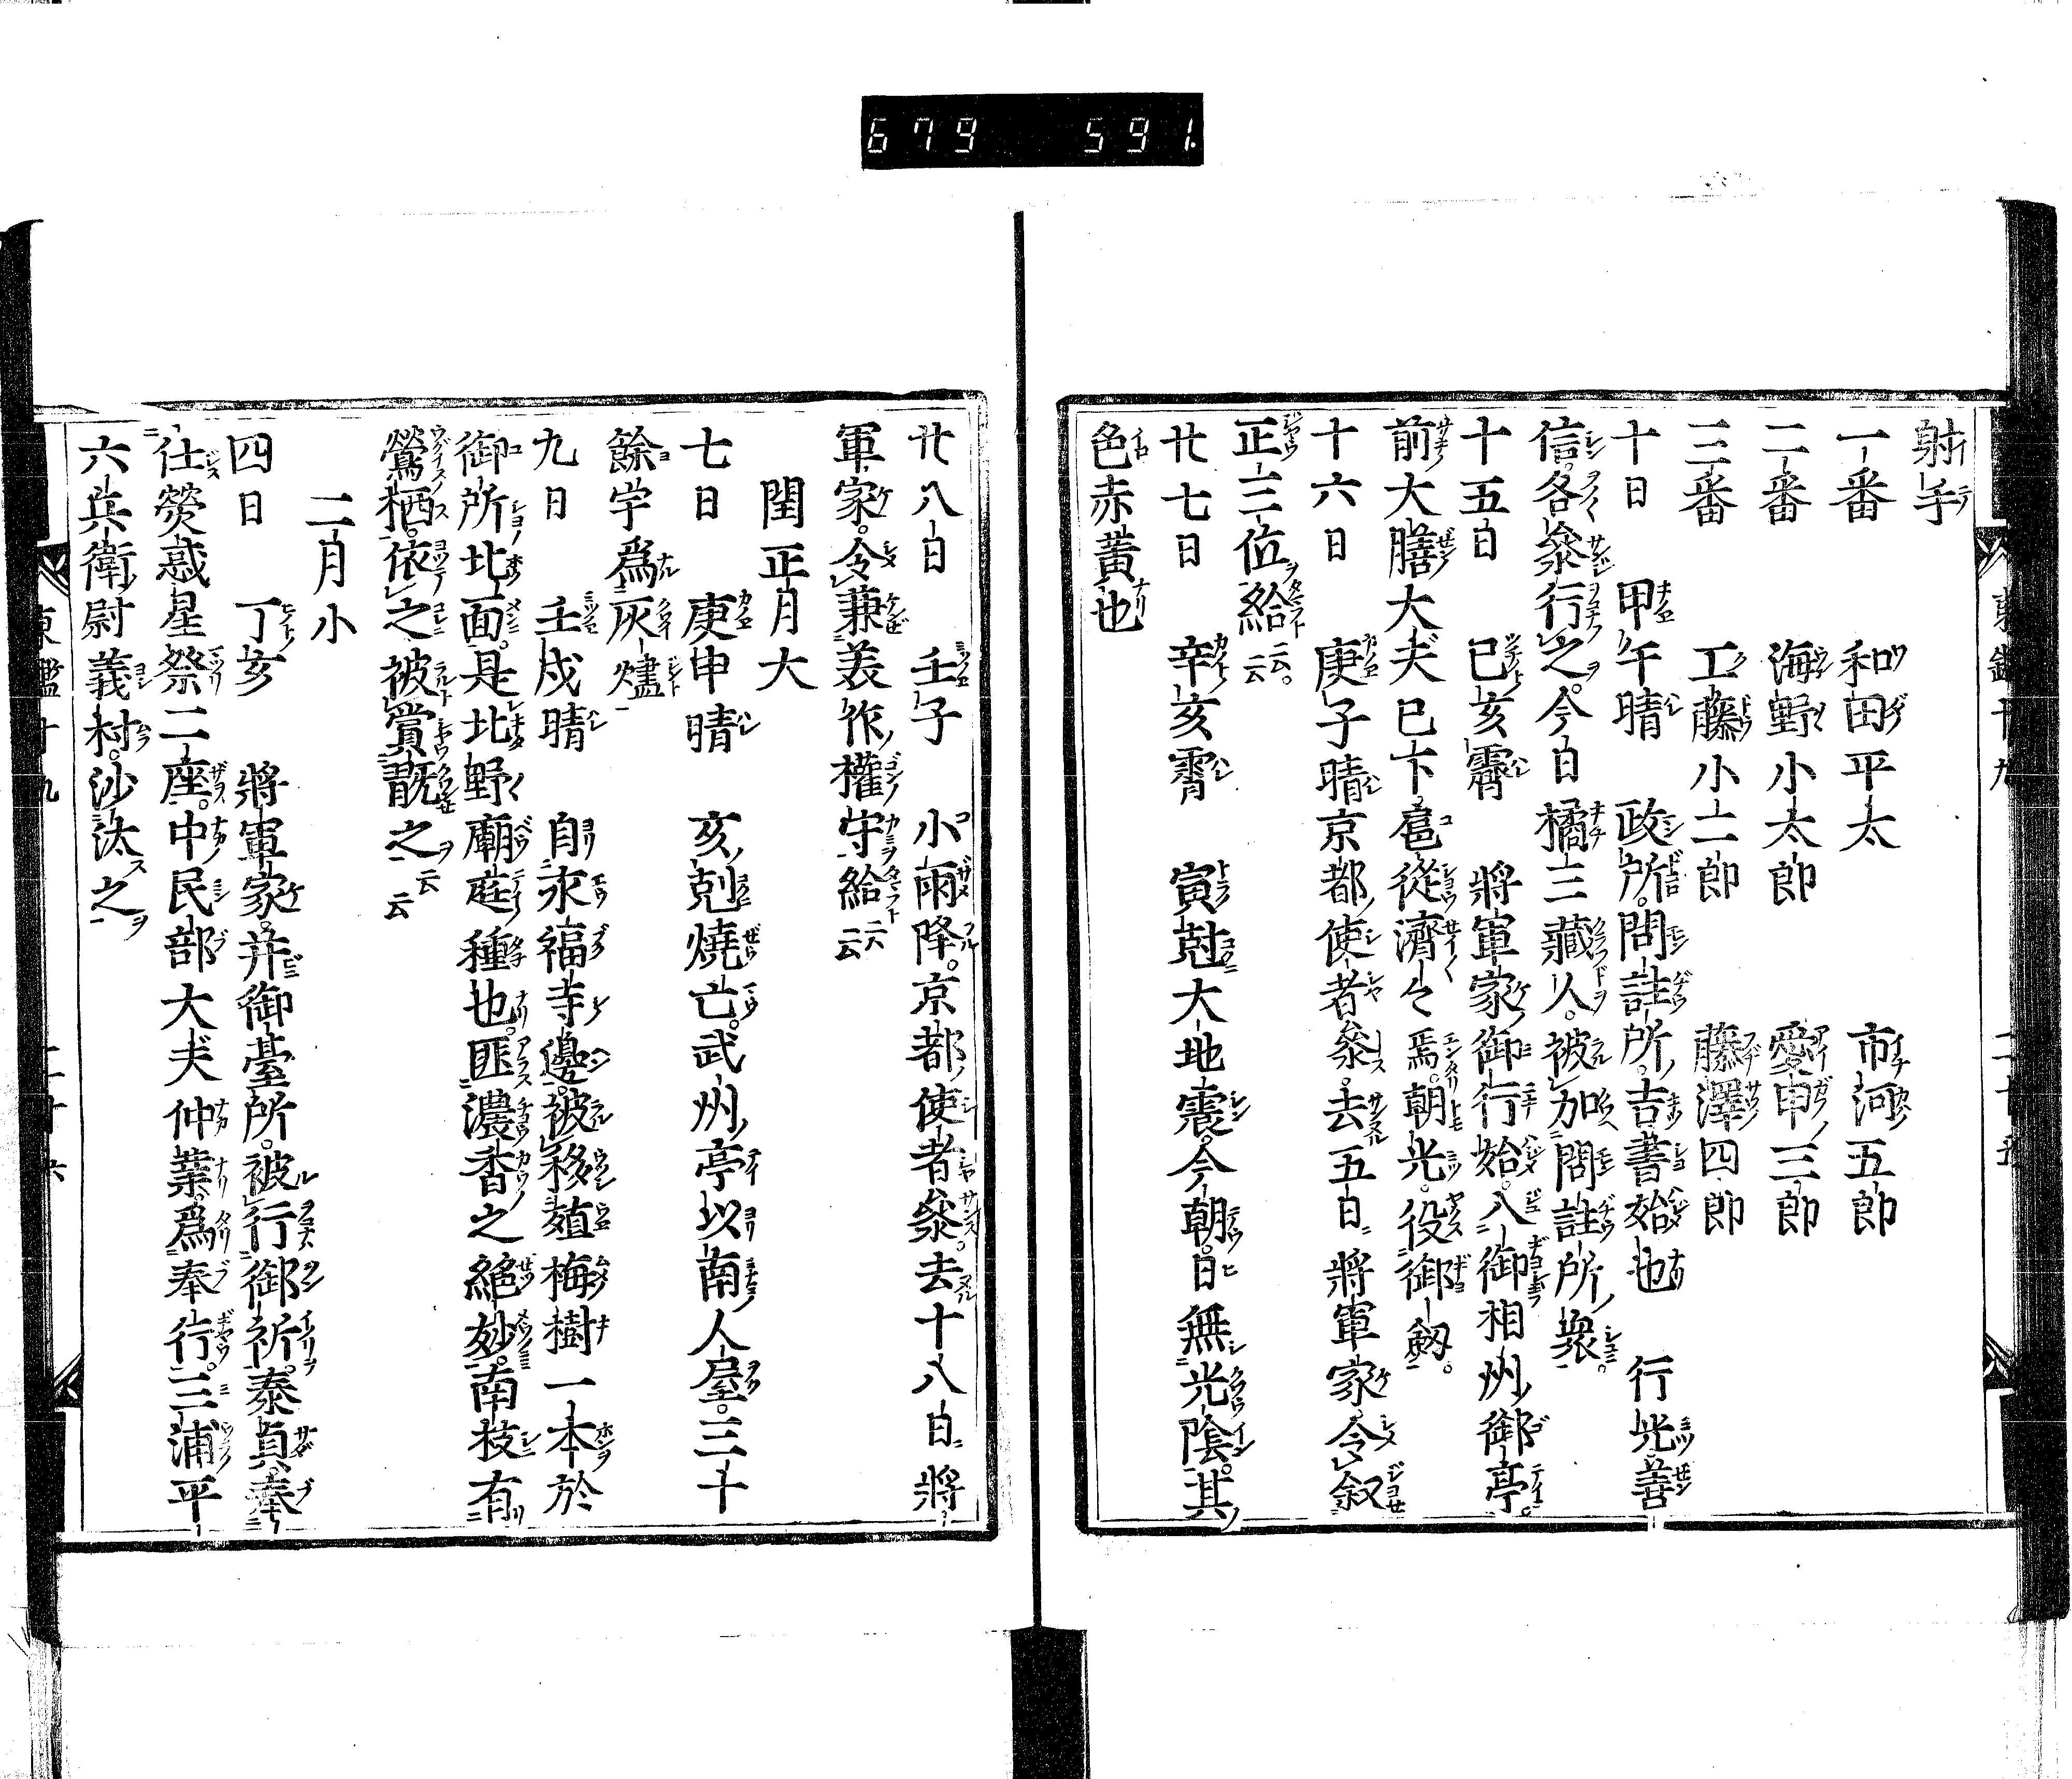 679 591
射手
一番 和田平太 市河五郎
二番 海野小太郎 愛甲三郎
三番 工藤小二郎 藤澤四郎
十日 甲午晴 政所。問註所。吉書始也 行光善
信。各參行之。今日橘三藏人。被加問註所衆。
十五日 己亥霽 將軍家御行始。入御相州御亭。
前大膳大夫已下。扈從濟々焉。朝光。役御劔。
十六日 庚子晴京都使者參。去五日將軍家令叙
正三位給云云。
廿七日 辛亥霽 寅尅大地震。今朝。日無光陰。其
色赤黃也
廿八日 壬子 小雨降。京都使者參。去十八日將
軍家。令兼美作權守給云云
閏正月大
七日 庚申晴 亥尅燒亡。武州亭以南人屋。三十
餘宇爲灰燼
九日 壬戌晴 自永福寺邊。被移殖梅樹一本於
御所北面。是北野廟庭種也。匪濃香之絶妙。南枝有
鶯栖。依之被賞翫之云云
二月小
四日 丁亥 將軍家。幷御臺所。被行御祈。泰貞。奉
仕熒惑星祭二座。中民部大夫仲業。爲奉行。三浦平
六兵衛尉義村。沙汰之
東鑑十九 二十六